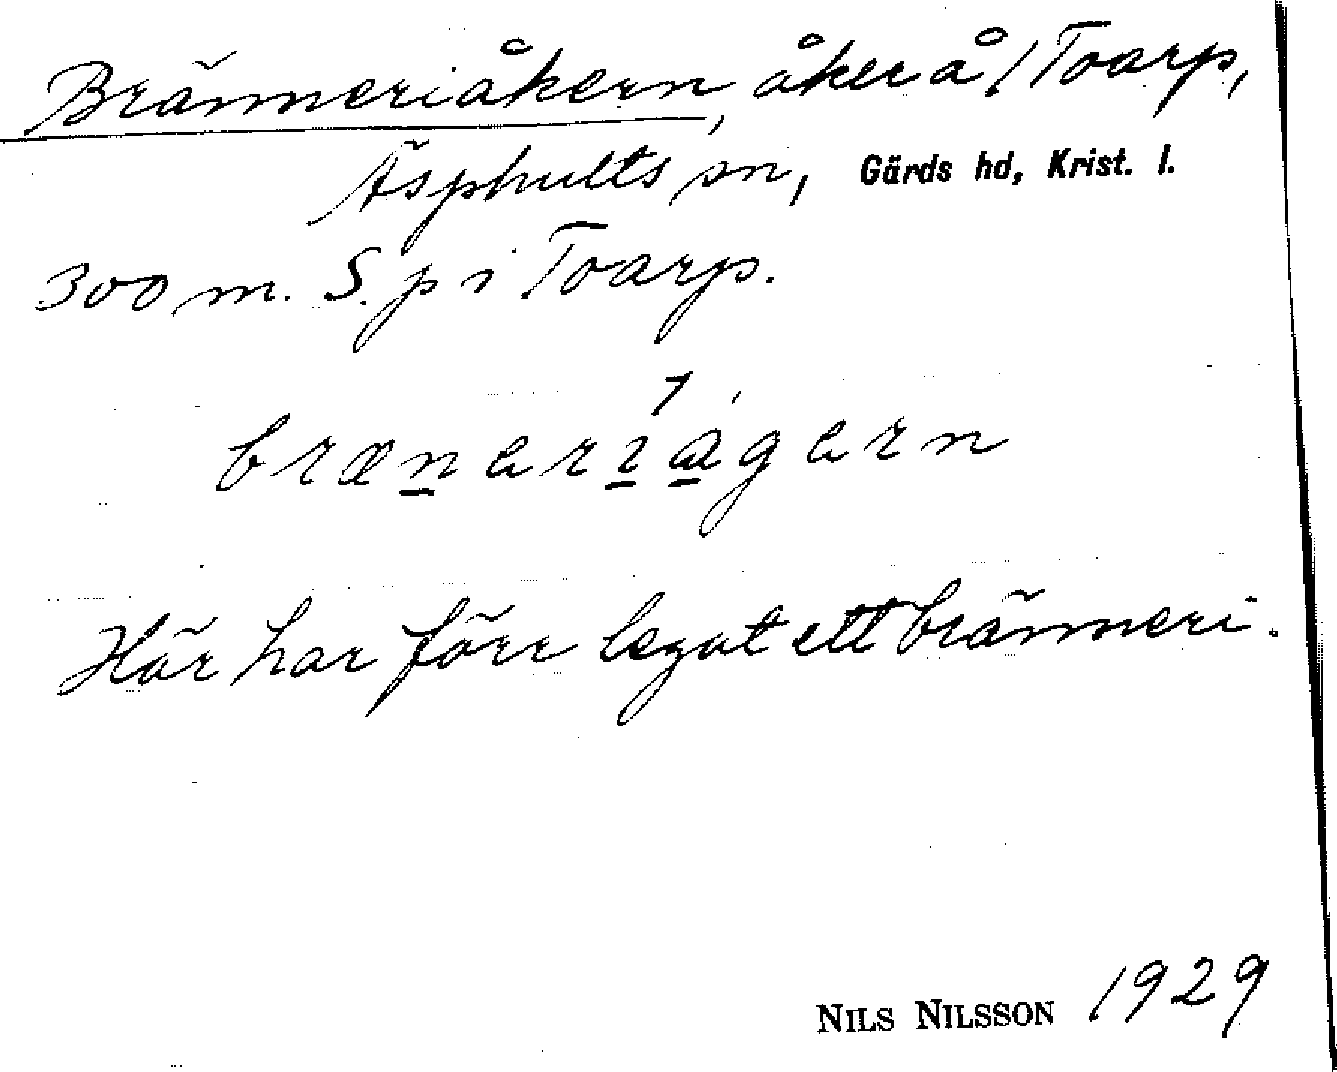 Bränneriåkern, åker å 1 Toarp,
Äsphults sn, Gärds hd, Krist. l.
300 m. S. p i Toarp.
brænerıågern
Här har förr legat ett bränneri.
NILS NILSSON 1929